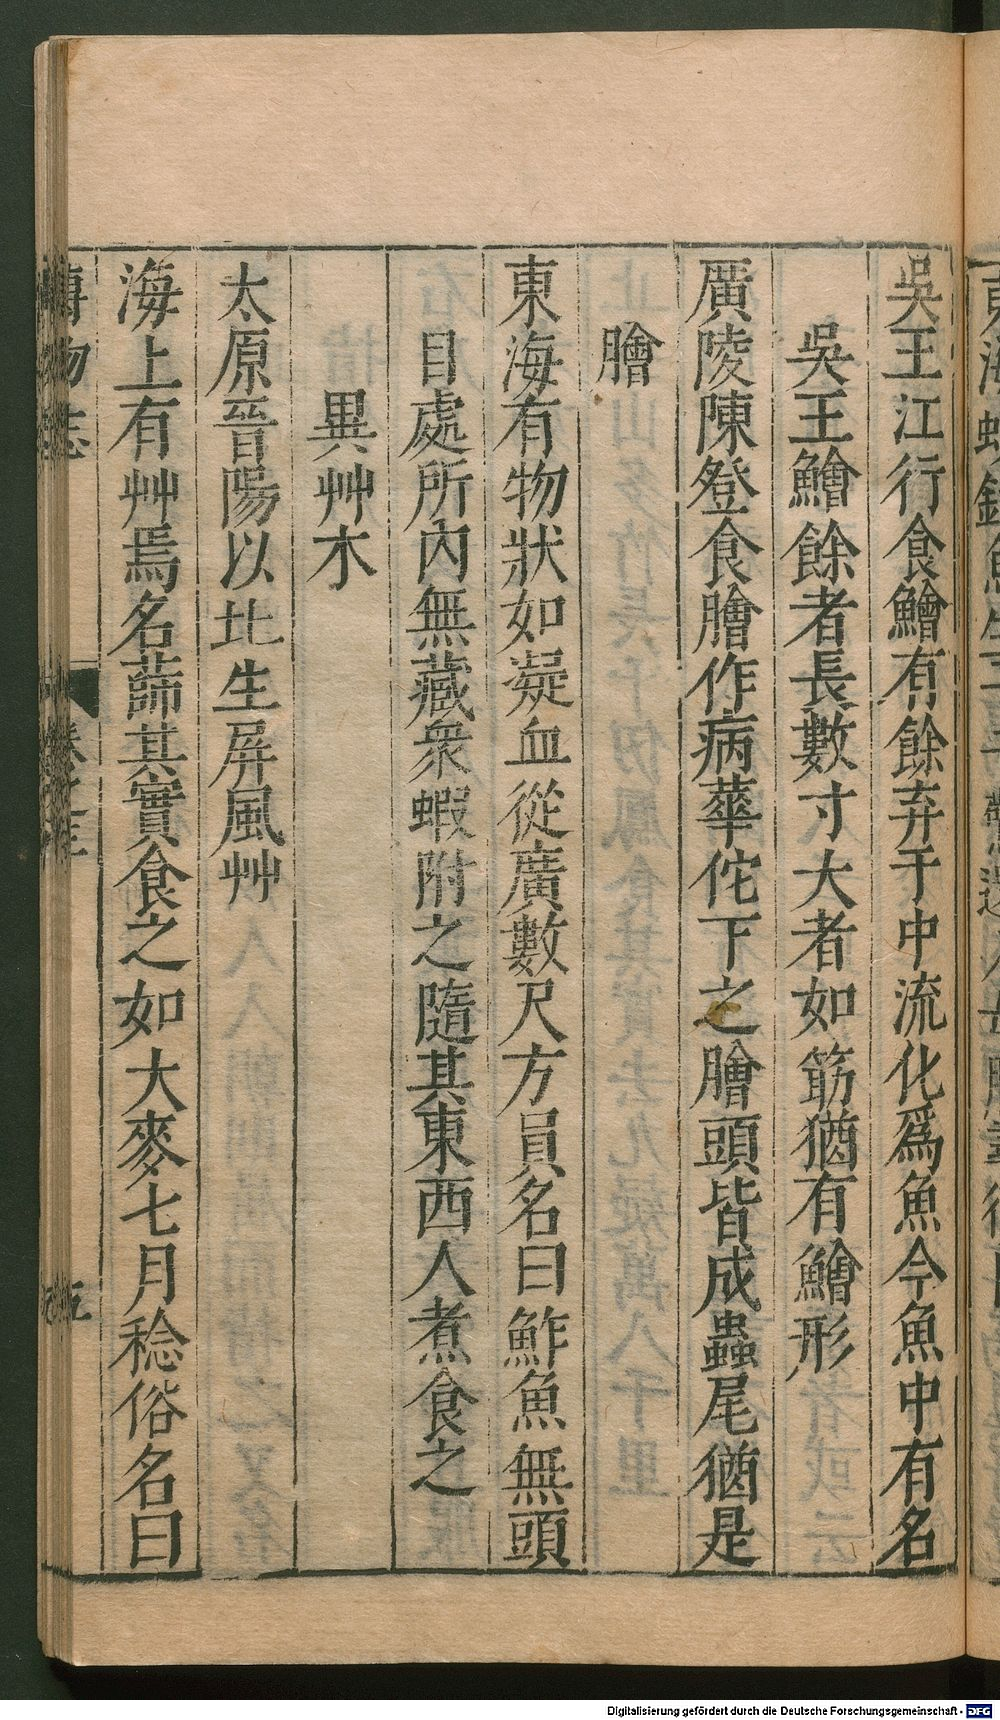 吳王江行食鱠有餘弃于中流化爲魚今魚中有名
吳王鱠餘者長數寸大者如筯猶有鱠形
廣陵陳登食膾作病華佗下之膾頭皆成蟲尾猶是
膾
東海有物狀如凝血從廣數尺方員名曰鮓魚無頭
目處所內無藏衆蝦附之隨其東西人煮食之
異艸木
太原晉陽以北生屏風艸
海上有艸焉名蒒其實食之如大麥七月稔俗名曰
博物志
卷之三
五
Digitalisierung gefördert durch die Deutsche Forschungsgemeinschaft - DFG